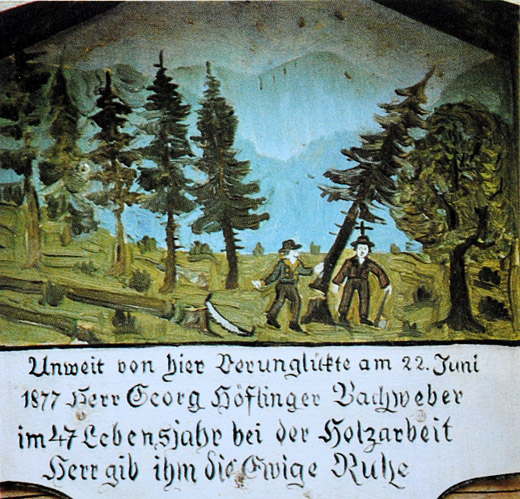 Unweit von hier Verunglükte am 22. Juni
1877 Herr Georg Höflinger Bachweber
im 47 Lebensjahr bei der Holzarbeit
Herr gib ihm die Ewige Ruhe